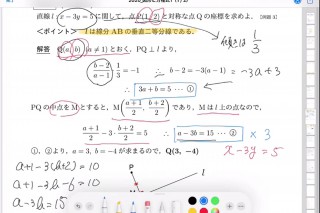 直線 l : x－3y＝5 に関して，点P(1, 2)と対称な点Qの座標を求めよ。
＜ポイント＞ l は線分ABの垂直二等分線である。
1/3
解答 Q(a, b) (a≠1)とおく。PQ⊥l より，
(b－2)/(a－1)・1/3＝－1 ∴ b－2＝－3(a－1) ＝－3a＋3
∴ 3a＋b＝5 … ①
PQの中点をMとすると，M((a＋1)/2, (b＋2)/2)であり，Mは l 上の点なので，
(a＋1)/2－3・(b＋2)/2＝5 ∴ a－3b＝15 … ② ×3
①，②より，a＝3, b＝－4が求まるので，Q(3, －4)
x－3y＝5
a＋1－3(b＋2)＝10
a＋1－3b－6＝10
a－3b＝15
P
l